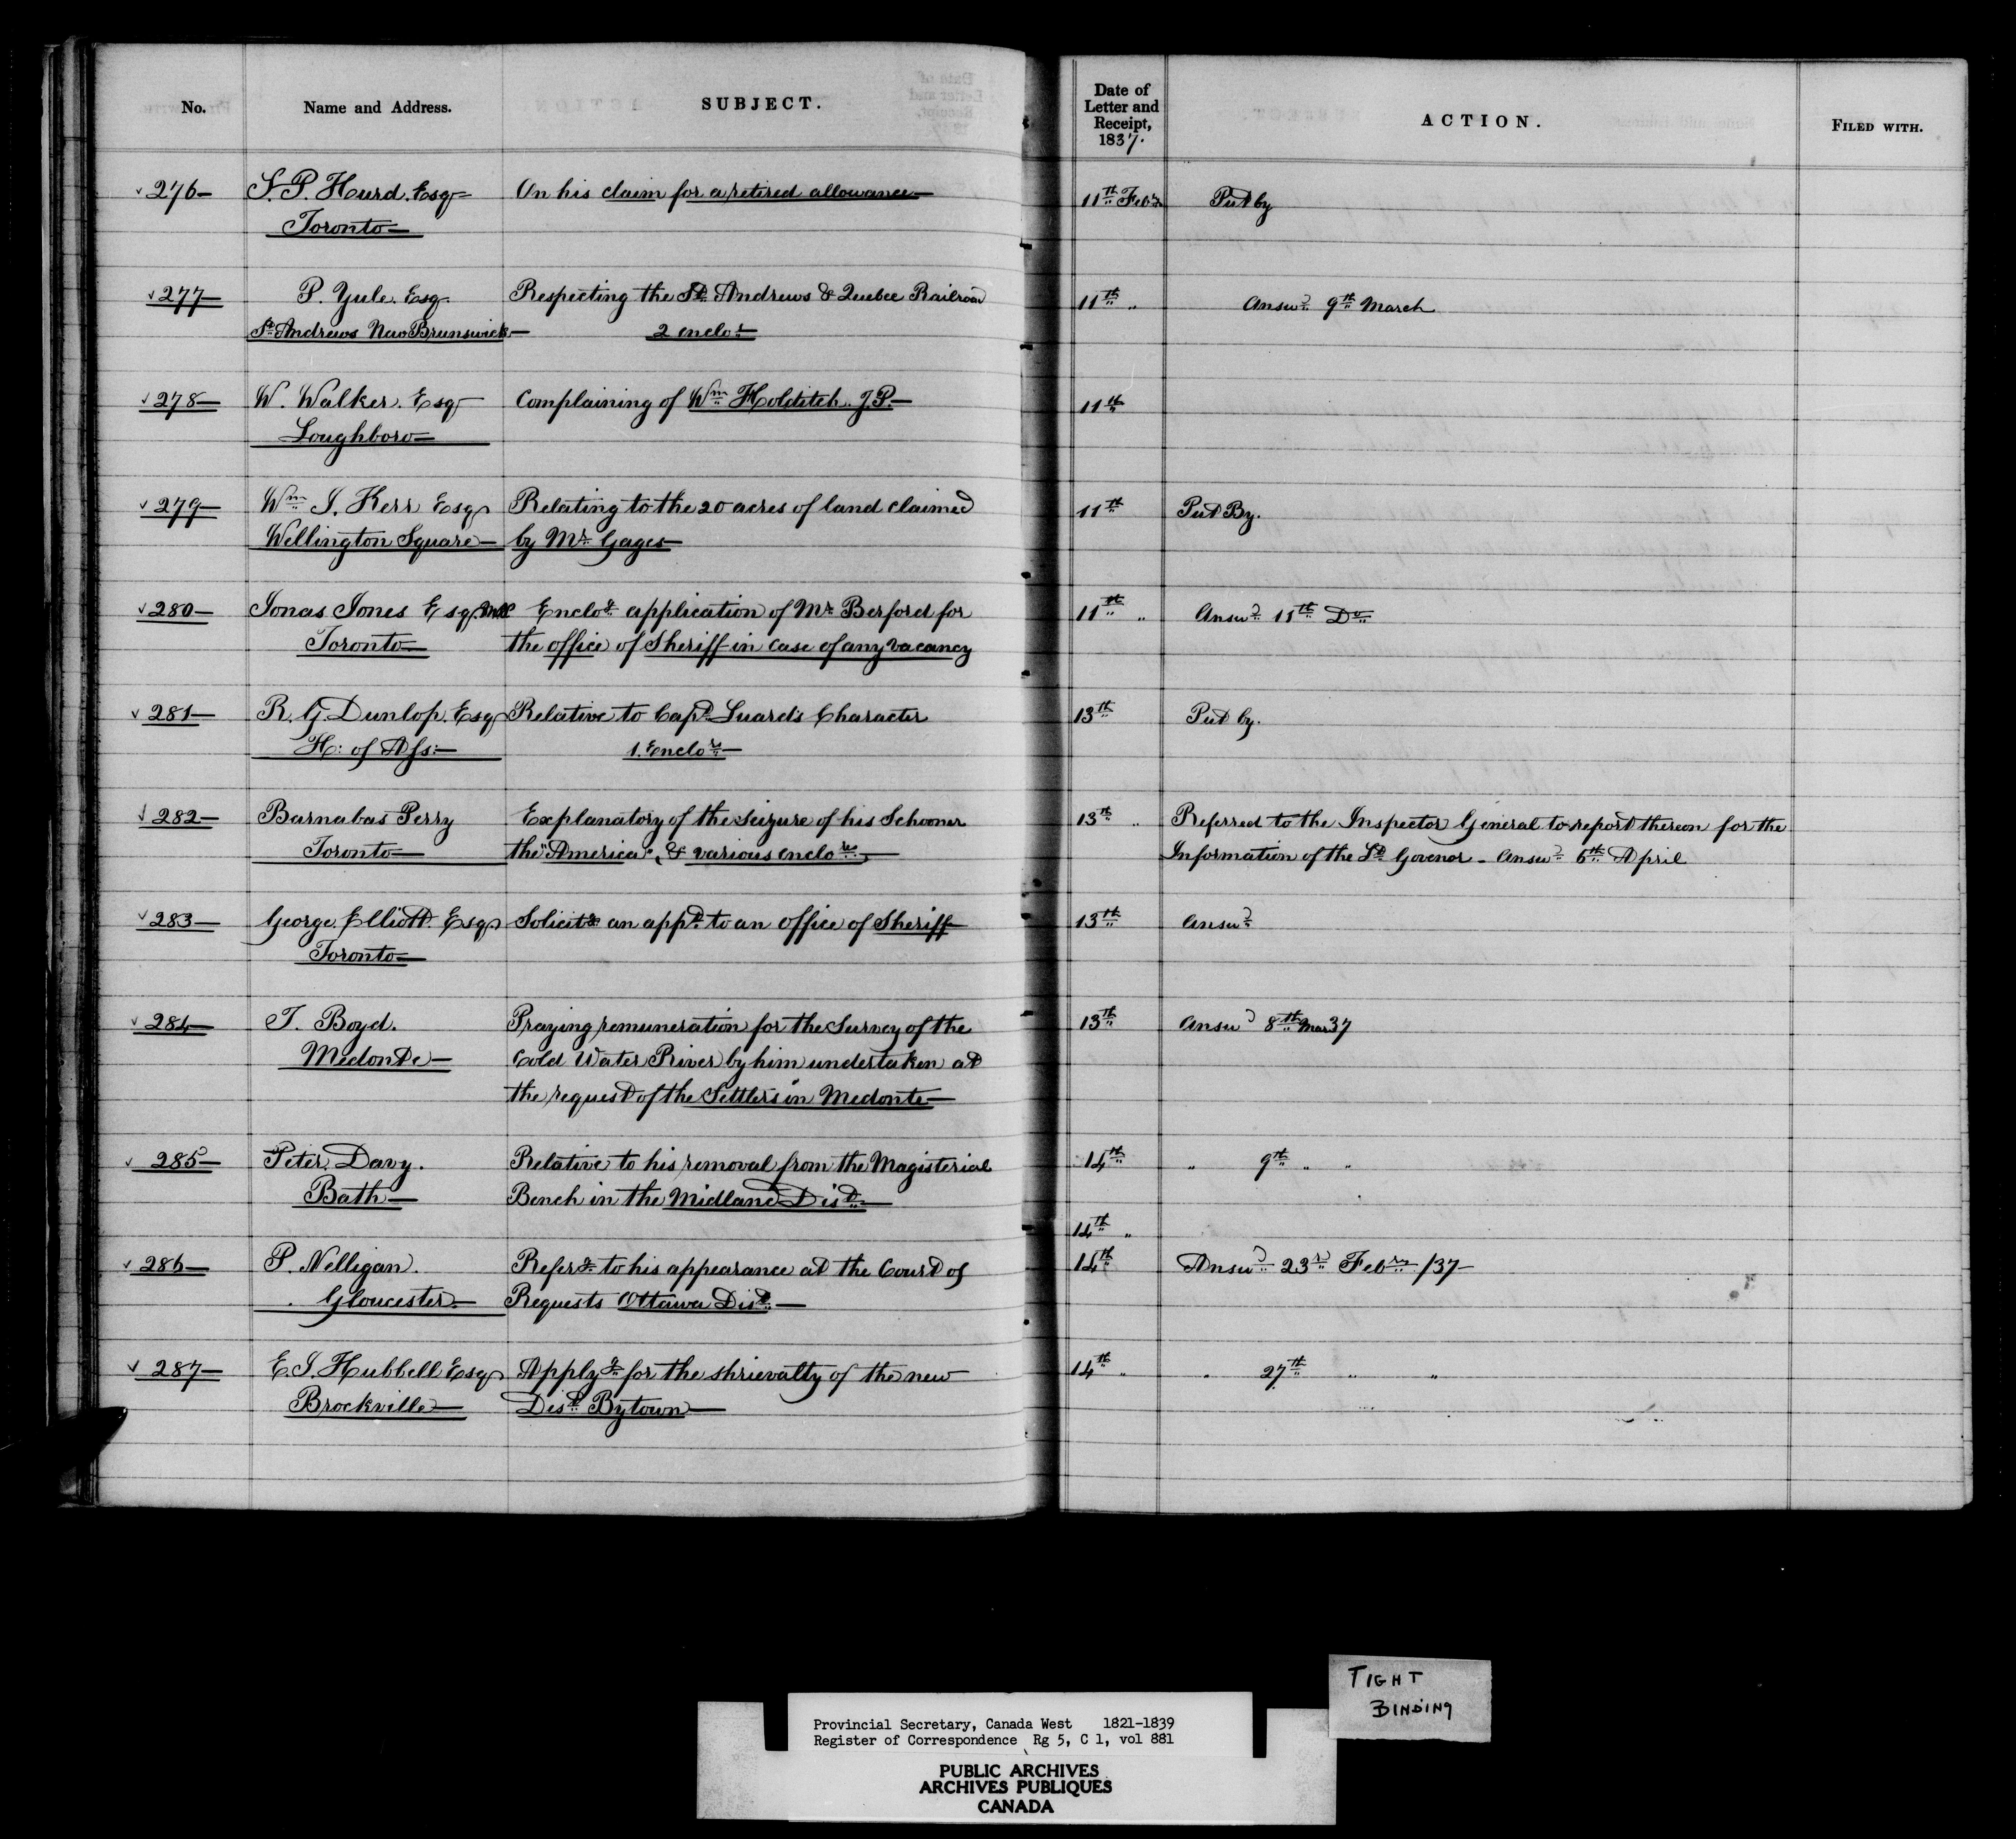 No. Name and Address. SUBJECT. Date of Letter and Receipt, 1837. ACTION. FILED WITH.
276 S. P. Hurd. Esqr On his claim for a retired allowance 11th Feby Put by
Toronto
277 P. Yule. Esq Respecting the St Andrews & Quebec Railroad 11th " Answd 9th March
St Andrews New Brunswick 2 enclos
278 W. Walker. Esqr Complaining of Wm Holditch. J.P. 11th
Loughboro
279 Wm J. Kerr Esqr Relating to the 20 acres of land claimed 11th Put By.
Wellington Square by Mr Gages
280 Jonas Jones Esqr Enclog application of Mr Berford for 11th " Answd 11th Do
Toronto the office of Sheriff in case of any vacancy
281 R. G. Dunlop. Esqr Relative to Capt Luard's Character 13th Put by.
H: of Ass: 1. Enclor
282 Barnabas Perry Explanatory of the seizure of his Schooner 13th " Referred to the Inspector General to report thereon for the
Toronto the "America", & various enclores Information of the Lt Govenor - Answd 6th April
283 George Elliott. Esqr Solicitg an appt to an office of Sheriff 13th Answd
Toronto
284 T. Boyd. Praying remuneration for the Survey of the 13th Answd 8th Mar 37
Medonte Cold Water River by him undertaken at
the request of the Settlers in Medonte
285 Peter Davy. Relative to his removal from the Magisterial 14th " 9th " "
Bath Bench in the Midland Dist
14th "
286 P. Nelligan. Referg to his appearance at the Court of 14th Answd 23rd Febry /37
Gloucester Requests Ottawa Dist
287 E. J. Hubbell Esqr Applyg for the shrievalty of the new 14th " " 27th " "
Brockville Dist Bytown
TIGHT
BINDING
Provincial Secretary, Canada West 1821-1839
Register of Correspondence Rg 5, C 1, vol 881
PUBLIC ARCHIVES
ARCHIVES PUBLIQUES
CANADA